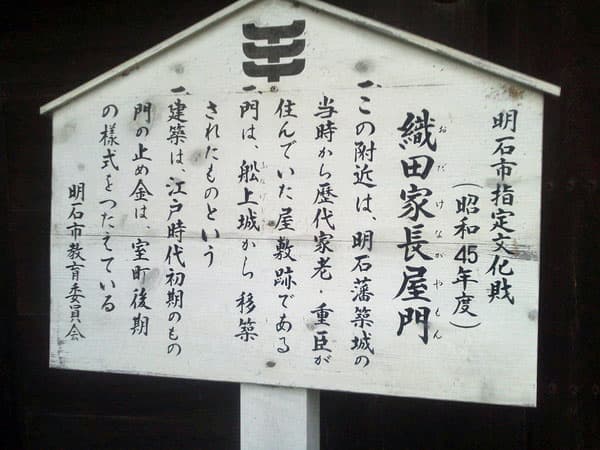 明石市指定文化財
（昭和45年度）
織田家長屋門
おだけながやもん
一この附近は、明石藩築城の
当時から歴代家老・重臣が
住んでいた屋敷跡である
一門は、船上城から移築
ふなげ
されたものという
一建築は、江戸時代初期のもの
門の止め金は、室町後期
の様式をつたえている
明石市教育委員会